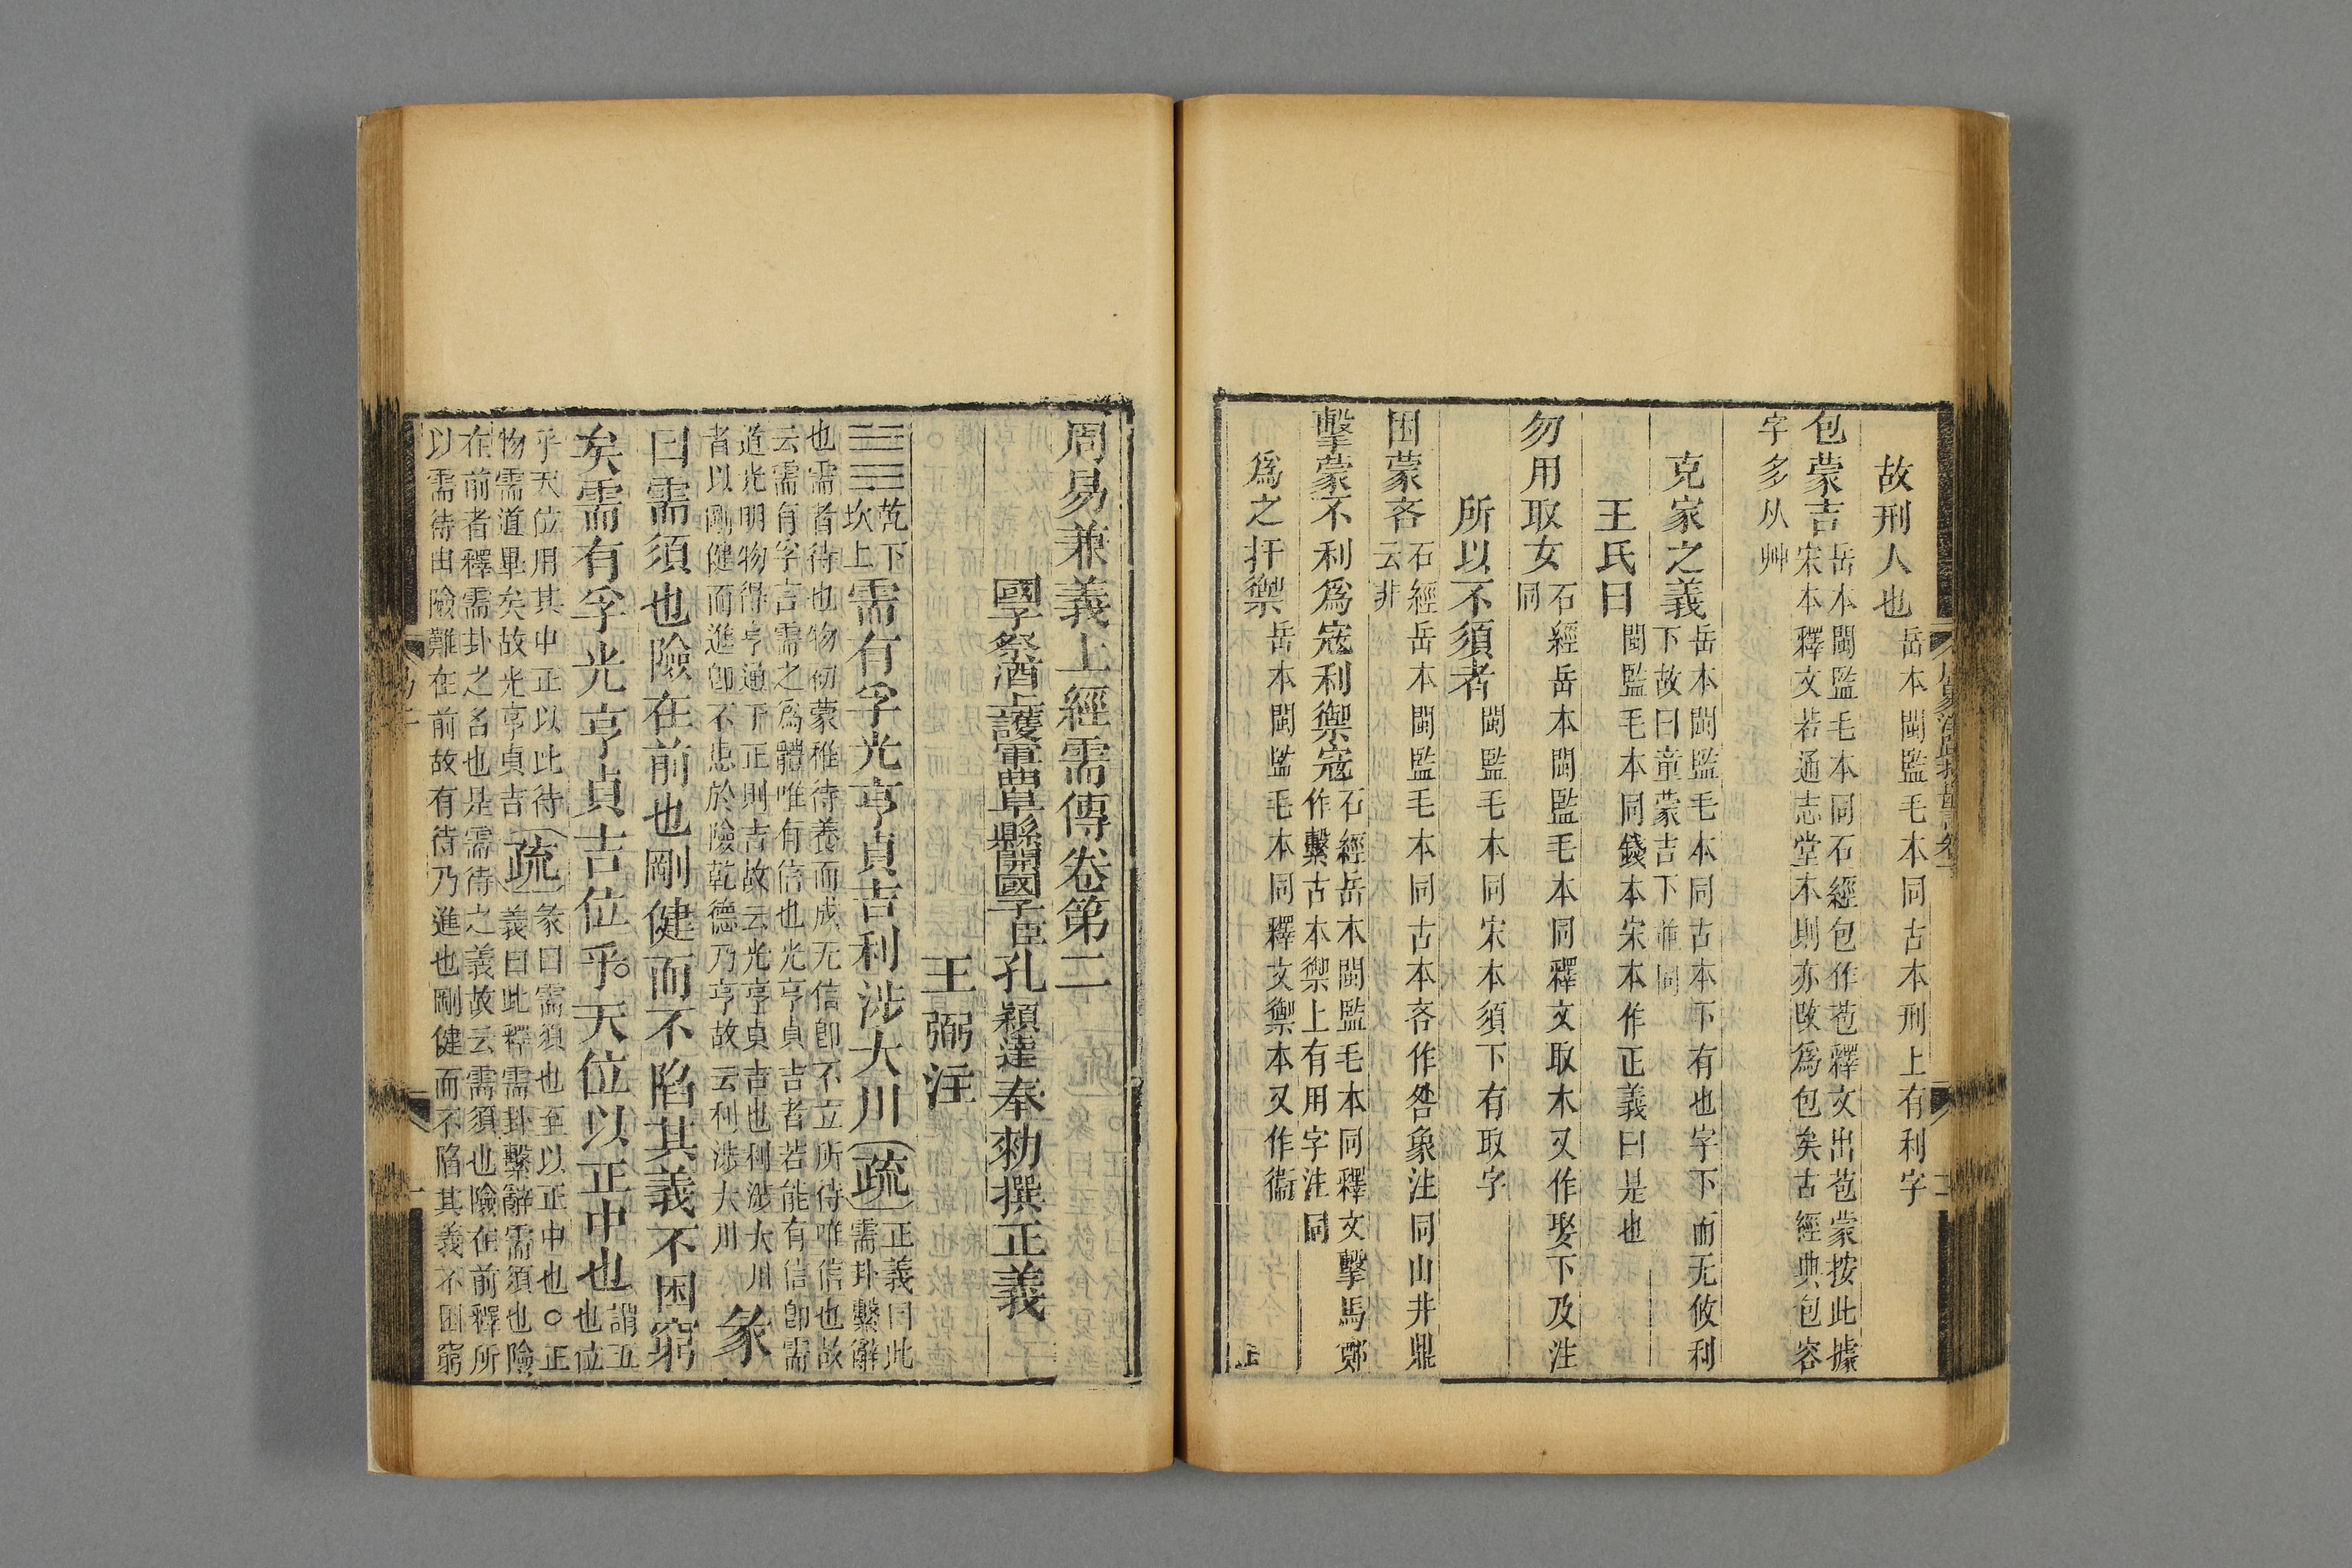 故刑人也 岳本閩監毛本同古本刑上有利字
包蒙吉 岳本閩監毛本同石經包作苞釋文出苞蒙按此據
宋本釋文若通志堂本則亦改爲包矣古經典包容
字多从艸
克家之義 岳本閩監毛本同古本下有也字下而无攸利
下故曰童蒙吉下並同
王氏曰 閩監毛本同錢本宋本作正義曰是也
勿用取女 石經岳本閩監毛本同釋文取本又作娶下及注
同
所以不須者 閩監毛本同宋本須下有取字
困蒙吝 石經岳本閩監毛本同古本吝作咎象注同山井鼎
云非
擊蒙不利爲寇利禦寇 石經岳本閩監毛本同釋文擊馬鄭
作繫古本禦上有用字注同
爲之扞禦 岳本閩監毛本同釋文禦本又作衞
周易兼義上經需傳卷第二
國子祭酒上護軍曲阜縣開國子臣孔穎達奉勑撰正義
王弼注
䷄ 乾下
坎上
需有孚光亨貞吉利涉大川 疏 正義曰此
需卦繫辭
也需者待也物初蒙稚待養而成无信卽不立所待唯信也故
云需有孚言需之爲體唯有信也光亨貞吉者若能有信卽需
道光明物得亨通于正則吉故云光亨貞吉也利涉大川
者以剛健而進卽不患於險乾德乃亨故云利涉大川
彖
曰需須也險在前也剛健而不陷其義不困窮
矣需有孚光亨貞吉位乎天位以正中也 謂五
也位
乎天位用其中正以此待
物需道畢矣故光亨貞吉
疏 彖曰需須也至以正中也○正
義曰此釋需卦繫辭需須也險
在前者釋需卦之名也是需待之義故云需須也險在前釋所
以需待由險難在前故有待乃進也剛健而不陷其義不困窮